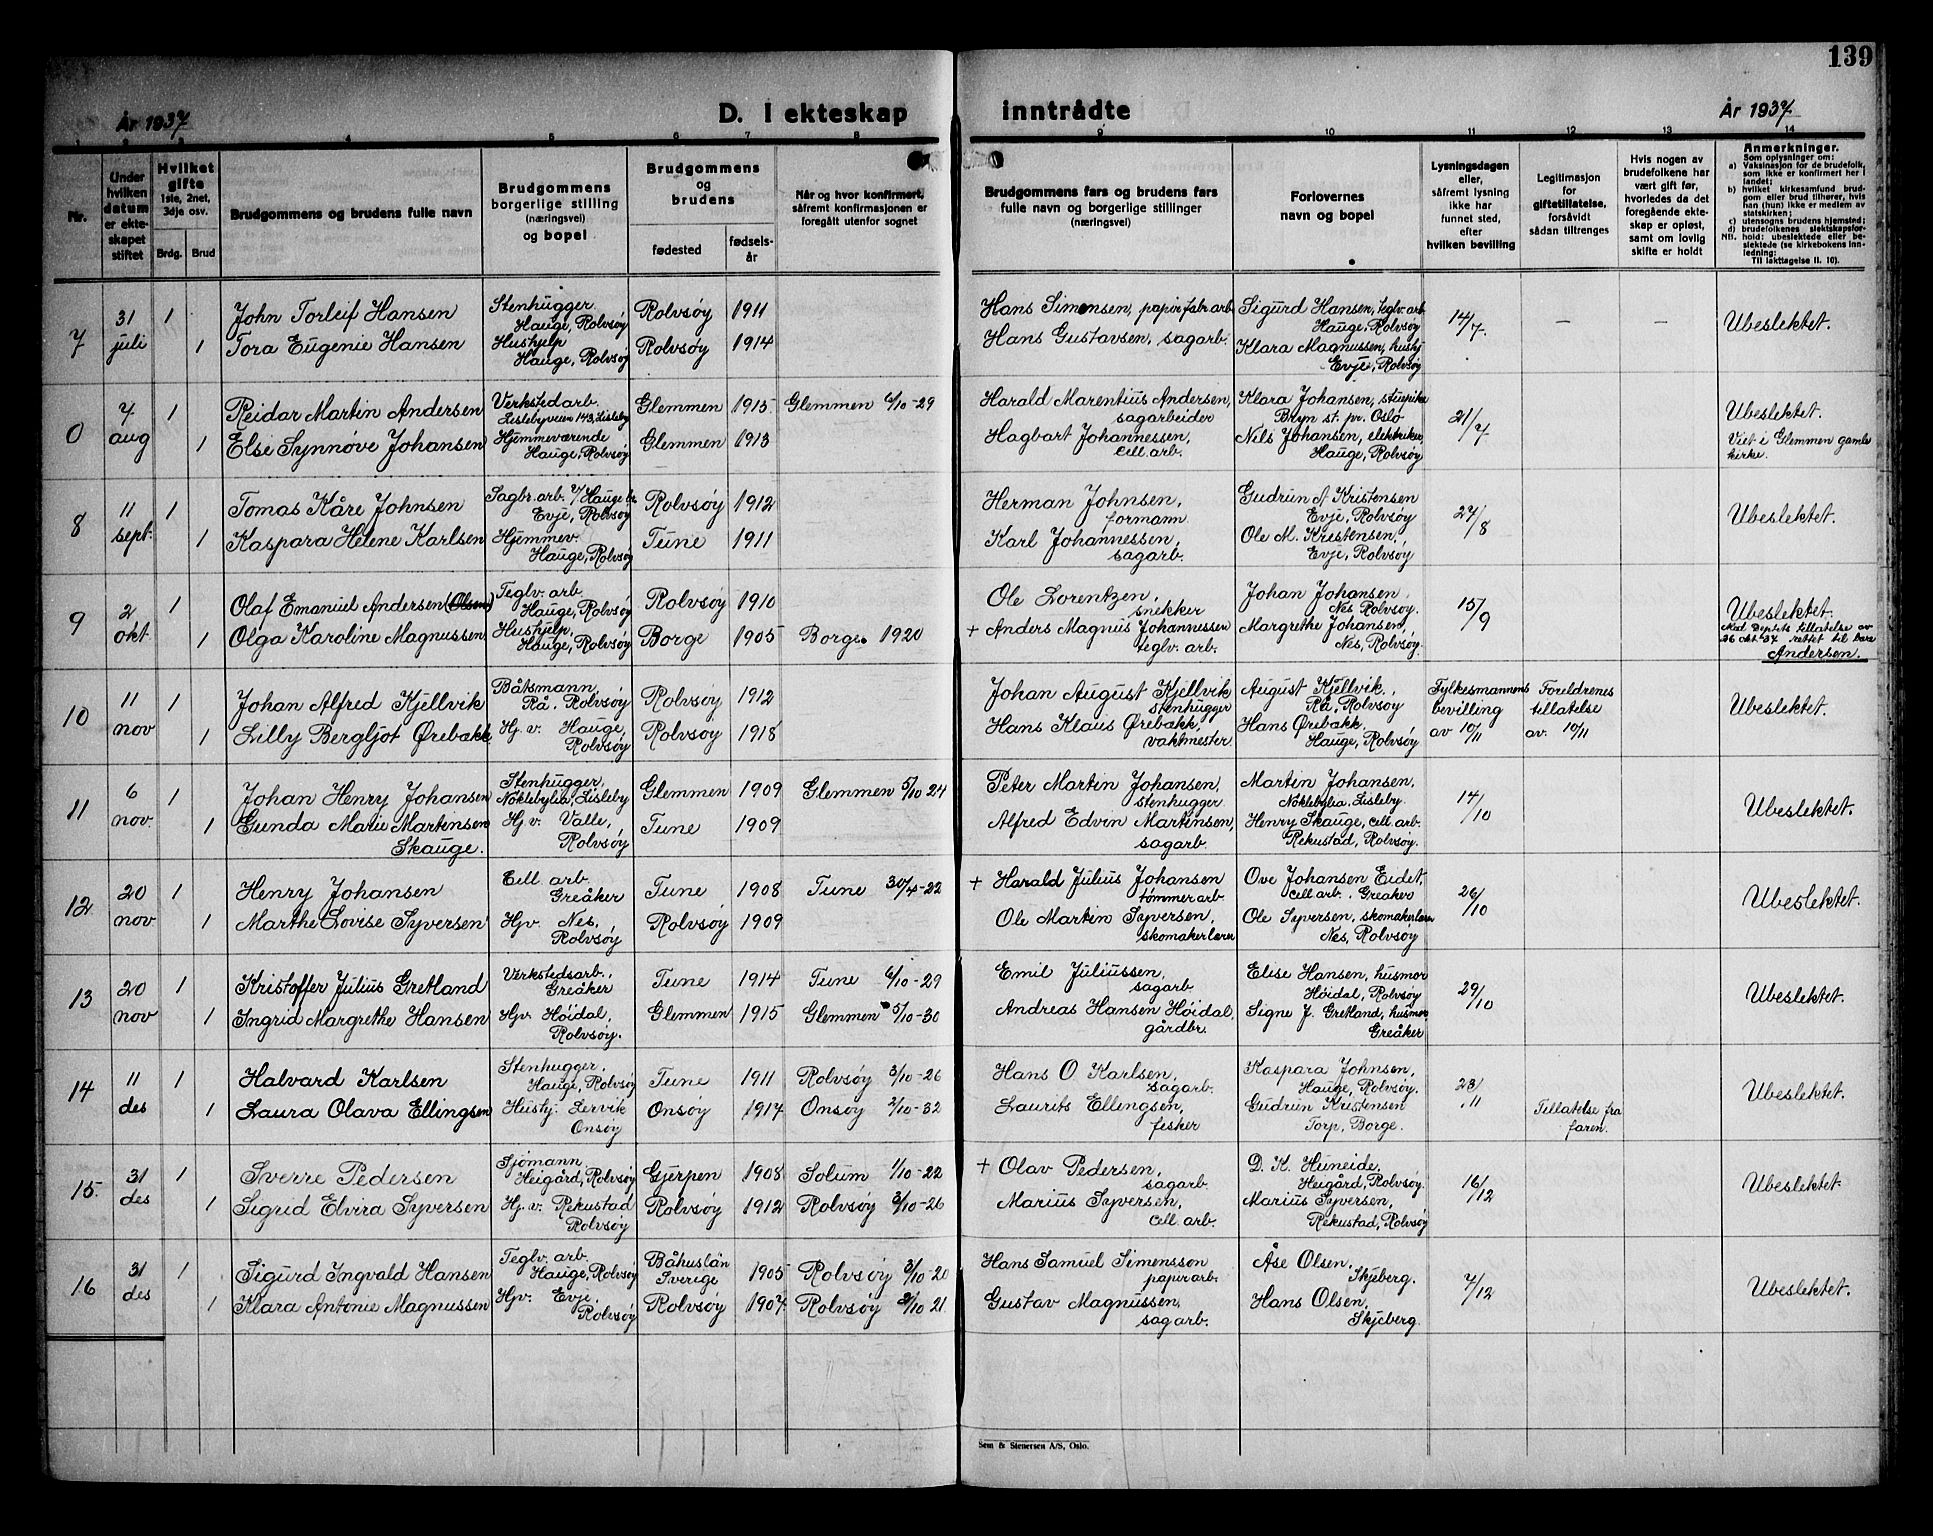 139
År 1937
D. I ekteskap
inntrådte
År 1937
1 2 3 4 5 6 7 8 9 10 11 12 13 14
Nr.
Under hvilken datum er ekteskapet stiftet
Hvilket gifte
1ste, 2net, 3dje osv.
Brdg. Brud
Brudgommens og brudens fulle navn
Brudgommens
borgerlige stilling
(næringsvei)
og bopel
Brudgommens
og
brudens
fødested
fødsels-
år
Når og hvor konfirmert,
såfremt konfirmasjonen er
foregått utenfor sognet
Brudgommens fars og brudens fars
fulle navn og borgerlige stillinger
(næringsvei)
Forlovernes
navn og bopel
Lysningsdagen
eller,
såfremt lysning
ikke har
funnet sted,
efter
hvilken bevilling
Legitimasjon
for
giftetillatelse,
forsåvidt
sådan tiltrenges
Hvis nogen av
brudefolkene har
vært gift før,
hvorledes da det
foregående ekte-
skap er opløst,
samt om lovlig
skifte er holdt
Anmerkninger.
Som oplysninger om:
a) Vaksinasjon for de brudefolk,
som ikke er konfirmert her i
landet;
b) hvilket kirkesamfund brud-
gom eller brud tilhører, hvis
han (hun) ikke er medlem av
statskirken;
c) utensogns brudens hjemsted;
d) brudefolkenes slektskapsfor-
NB. hold: ubeslektede eller be-
slektede (se kirkebokens inn-
ledning:
Til iakttagelse II. 10).
7 31 juli 1 1
John Torleif Hansen
Tora Eugenie Hansen
Stenhugger
Hauge, Rolvsöy
Hushjelp
Hauge, Rolvsöy
Rolvsöy 1911
Rolvsöy 1914
Hans Simensen, papirfabr arb
Hans Gustavsen, sagarb.
Sigurd Hansen, teglv. arb
Hauge, Rolvsöy
Klara Magnussen, hushj
Evje, Rolvsöy
14/7
– –
Ubeslektet.
0 7 aug 1 1
Reidar Martin Andersen
Else Synnøve Johansen
Verkstedarb.
Lislebyveien 143, Lisleby
Hjemmeværende
Hauge, Rolvsöy
Glemmen 1915 Glemmen 6/10-29
Glemmen 1913
Harald Marentius Andersen,
sagarbeider
Hagbart Johannessen,
cell. arb.
Klara Johansen, stuepike
Bryn st. pr. Oslo
Nils Johansen, elektriker,
Hauge, Rolvsöy
21/7
Ubeslektet.
Viet i Glemmen gamle
kirke.
8 11 sept. 1 1
Tomas Kåre Johnsen
Kaspara Helene Karlsen
Sagbr. arb. v/ Hauge br.
Evje, Rolvsöy
Hjemmev.
Hauge, Rolvsöy
Rolvsöy 1912
Tune 1911
Herman Johnsen,
formann
Karl Johannessen,
sagarb.
Gudrun A Kristensen
Evje, Rolvsöy
Ole M. Kristensen,
Evje, Rolvsöy
27/8
Ubeslektet.
9 2 okt 1 1
Olaf Emanuel Andersen (Olsen)
Olga Karoline Magnussen
Teglv. arb.
Hauge, Rolvsöy
Hushjelp,
Hauge, Rolvsöy
Rolvsöy 1910
Borge 1905 Borge 1920
Ole Lorentzen,
snekker
+ Anders Magnus Johannessen
teglv. arb.
Johan Johansen,
Nes Rolvsöy.
Margrethe Johansen,
Nes, Rolvsöy.
15/9
Ubeslektet.
Med Deptets tillatelse av
26 okt. 37 rettet til bare
Andersen.
10 11 nov 1 1
Johan Alfred Kjellvik
Lilly Bergljot Ørebakk
Båtsmann,
Rå, Rolvsöy
Hj. v. Hauge,
Rolvsöy
Rolvsöy 1912
Rolvsöy 1918
Johan August Kjellvik
stenhugger
Hans Klaus Ørebakk,
vaktmester.
August Kjellvik,
Rå, Rolvsöy
Hans Ørebakk
Hauge, Rolvsöy
Fylkesmannens
bevilling
av 10/11
Foreldrenes
tillatelse
av. 10/11
Ubeslektet.
11 6 nov. 1 1
Johan Henry Johansen
Gunda Marie Martinsen
Skauge.
Stenhugger,
Noklebylia, Lisleby
Hj. v. Valle,
Rolvsöy
Glemmen 1909 Glemmen 5/10 24
Tune 1909
Peter Martin Johansen,
stenhugger
Alfred Edvin Martinsen,
sagarb.
Martin Johansen,
Noklebylia, Lisleby.
Henry Skauge, cell. arb.
Rekustad, Rolvsöy.
14/10
Ubeslektet.
12 20 nov 1 1
Henry Johansen
Marthe Lovise Syversen
Cell. arb.
Greåker
Hjv. Nes,
Rolvsöy
Tune 1908 Tune 30/4-22
Rolvsöy 1909
+ Harald Julius Johansen
tømmerarb
Ole Martin Syversen,
skomakerlærer
Ove Johansen Eidet,
cell arb. Greåker
Ole Syversen, skomakerlærer
Nes, Rolvsöy
26/10
Ubeslektet.
13 20 nov 1 1
Kristoffer Julius Gretland
Ingrid Margrethe Hansen
Verkstedsarb.,
Greåker
Hjv. Höidal,
Rolvsöy.
Tune 1914 Tune 6/10-29
Glemmen 1915 Glemmen 5/10-30
Emil Juliussen,
sagarb
Andreas Hansen Höidal,
gårdbr.
Elise Hansen, husmor
Höidal, Rolvsöy
Signe J. Gretland, husmor
Greåker
29/10
Ubeslektet.
14 11 des 1 1
Halvard Karlsen
Laura Olava Ellingsen
Stenhugger,
Hauge, Rolvsöy
Hushj. Lervik
Onsöy
Tune 1911 Rolvsöy 3/10-26
Onsöy 1917 Onsöy 2/10-32
Hans O Karlsen,
sagarb.
Laurits Ellingsen,
fisker
Kaspara Johnsen,
Hauge, Rolvsöy.
Gudrun Kristensen
Torp, Borge.
23/11
Tillatelse fra
faren.
Ubeslektet.
15. 31 des 1 1
Sverre Pedersen
Sigrid Elvira Syversen
Sjömann,
Heigård, Rolvsöy
Hj. v. Rekustad
Rolvsöy
Gjerpen 1908 Solum 1/10-22
Rolvsöy 1912 Rolvsöy 3/10-26
+ Olav Pedersen,
sagarb
Marius Syversen,
cell. arb.
D. K. Huneide,
Heigård, Rolvsöy.
Marius Syversen,
Rekustad, Rolvsöy
16/12
Ubeslektet
16 31 des 1 1
Sigurd Ingvald Hansen
Klara Antonie Magnussen
Teglv. arb.
Hauge, Rolvsöy
Hjv. Evje
Rolvsöy
Båhuslän
Sverige 1905 Rolvsöy 3/10-20
Rolvsöy 1907. Rolvsöy 2/10 21.
Hans Samuel Simensson
papirarb.
Gustav Magnussen,
sagarb.
Åse Olsen,
Skjeberg.
Hans Olsen,
Skjeberg.
7/12
Ubeslektet.
Sem & Stenersen A/S, Oslo.